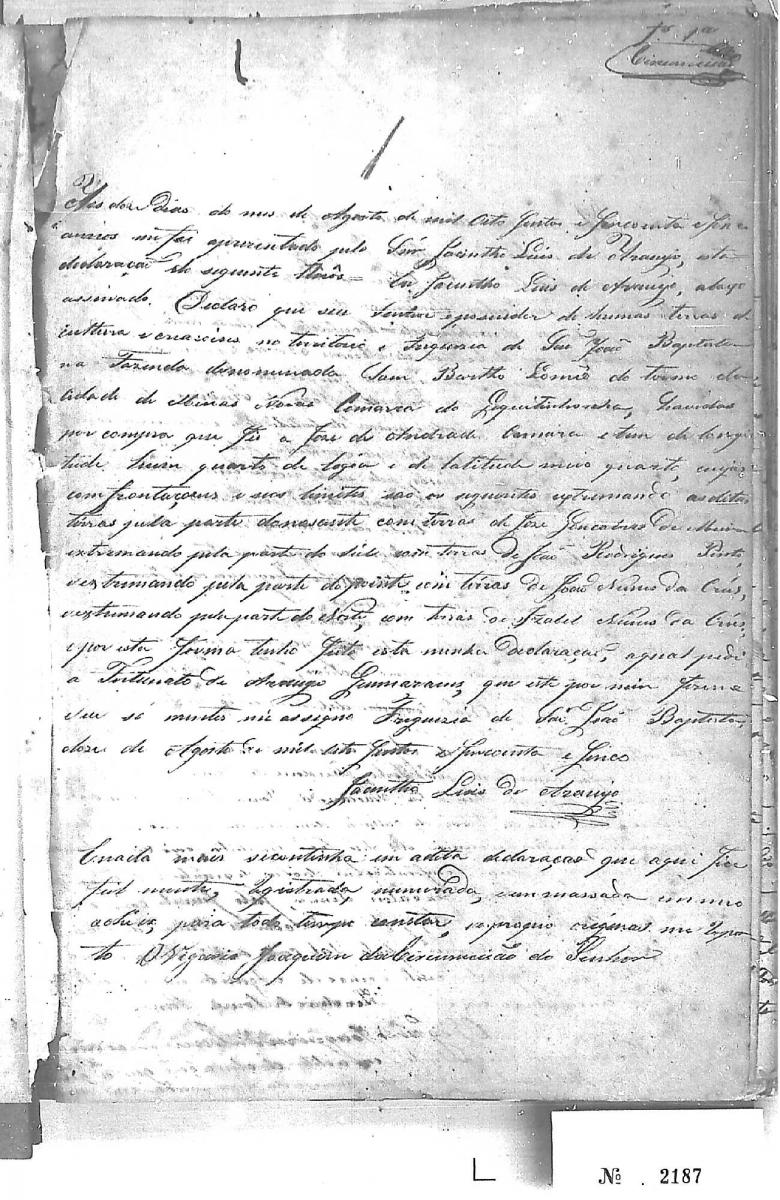 fs 1ª
Circumcisão
1
Aos doze Dias do mes de Agosto de mil Oito Sentos e Sincoenta e Sinco
annos me foi aprezentado pelo Snr Jacintho Luis de Araujo, esta
declaração do seguinte theôr = Eu Jacintho Luis de Araujo, abaixo
assinado. Declaro que sou Senhor e posuidor de humas terras de
cultura e creaçoens no territorio e Freguezia de São João Baptista
na Fazenda denominada Sam Bartho Lomêo do termo da
cidade de Minas Novas Comarca do Jequitinhonha, havidas
por compra que fis a Jose de Andrade Camara e tem de longi
tude hum quarto de legoa e de latitude meio quarto, cujas
comfrontaçoens e seus limites são os seguintes extremando as ditas
terras pela parte do nascente com terras de Jose Gonçalves de
extremando pela parte do Sul com terras de João Rodrigues Pinto,
extremando pela parte do poente com terras de João Nunes da Crús,
e extremando pela parte do Norte, com terras de Izabel Nunes da Crús,
e por esta forma tenho feito esta minha declaração, a qual pedi
a Fortunato de Araujo Guimaraens, que este por mim
e eu só mente me assigno Freguezia de São João Baptista
doze de Agosto de mil oito Sentos e Sincoenta e Sinco
Jacintho Luis de Araujo
E nada mais se continha em a dita declaração que aqui fica
fiel mente, registrada numerada, e emmassada em meo
achivo, para todo tempo constar, e a proprio original me reporto
to O Vigario Joaquim da Circumcisão do Senhor
L
Nº 2187